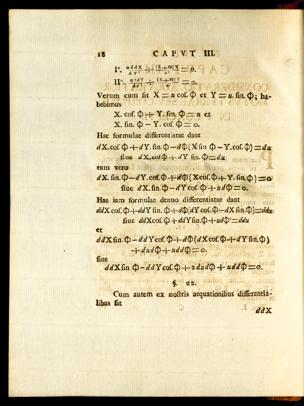 18 CAPVT III.
Verum cum sit X = u cos. Φ et Y = u. sin. Φ; ha-
bebimus
X. cos. Φ + Y. sin. Φ = u et
X. sin. Φ - Y. cos. Φ = 0.
Hae formulae differentiatae dant
dX. cos. Φ + dY. sin. Φ - dΦ(X sin. Φ - Y. cos. Φ) = du
siue dX. cos. Φ + dY sin. Φ = du
tum vero
dX. sin. Φ - dY. cos. Φ + dΦ(X cos. Φ + Y. sin. Φ) = 0
siue dX. sin. Φ - dY cos. Φ + udΦ = 0.
Hae iam formulae denuo differentiatae dant
ddX cos. Φ + ddY sin. Φ + dΦ(dY cos. Φ - dX sin. Φ) = ddu
siue ddX cos. Φ + ddY sin. Φ + udΦ² = ddu
et
ddX sin. Φ - ddY cos. Φ + dΦ(dX cos. Φ + dY sin. Φ)
+ dudΦ + uddΦ = 0.
siue
ddX sin Φ - ddY cos. Φ + 2 dudΦ + uddΦ = 0.
§. 22.
Cum autem ex nostris aequationibus differentia-
libus sit
ddX